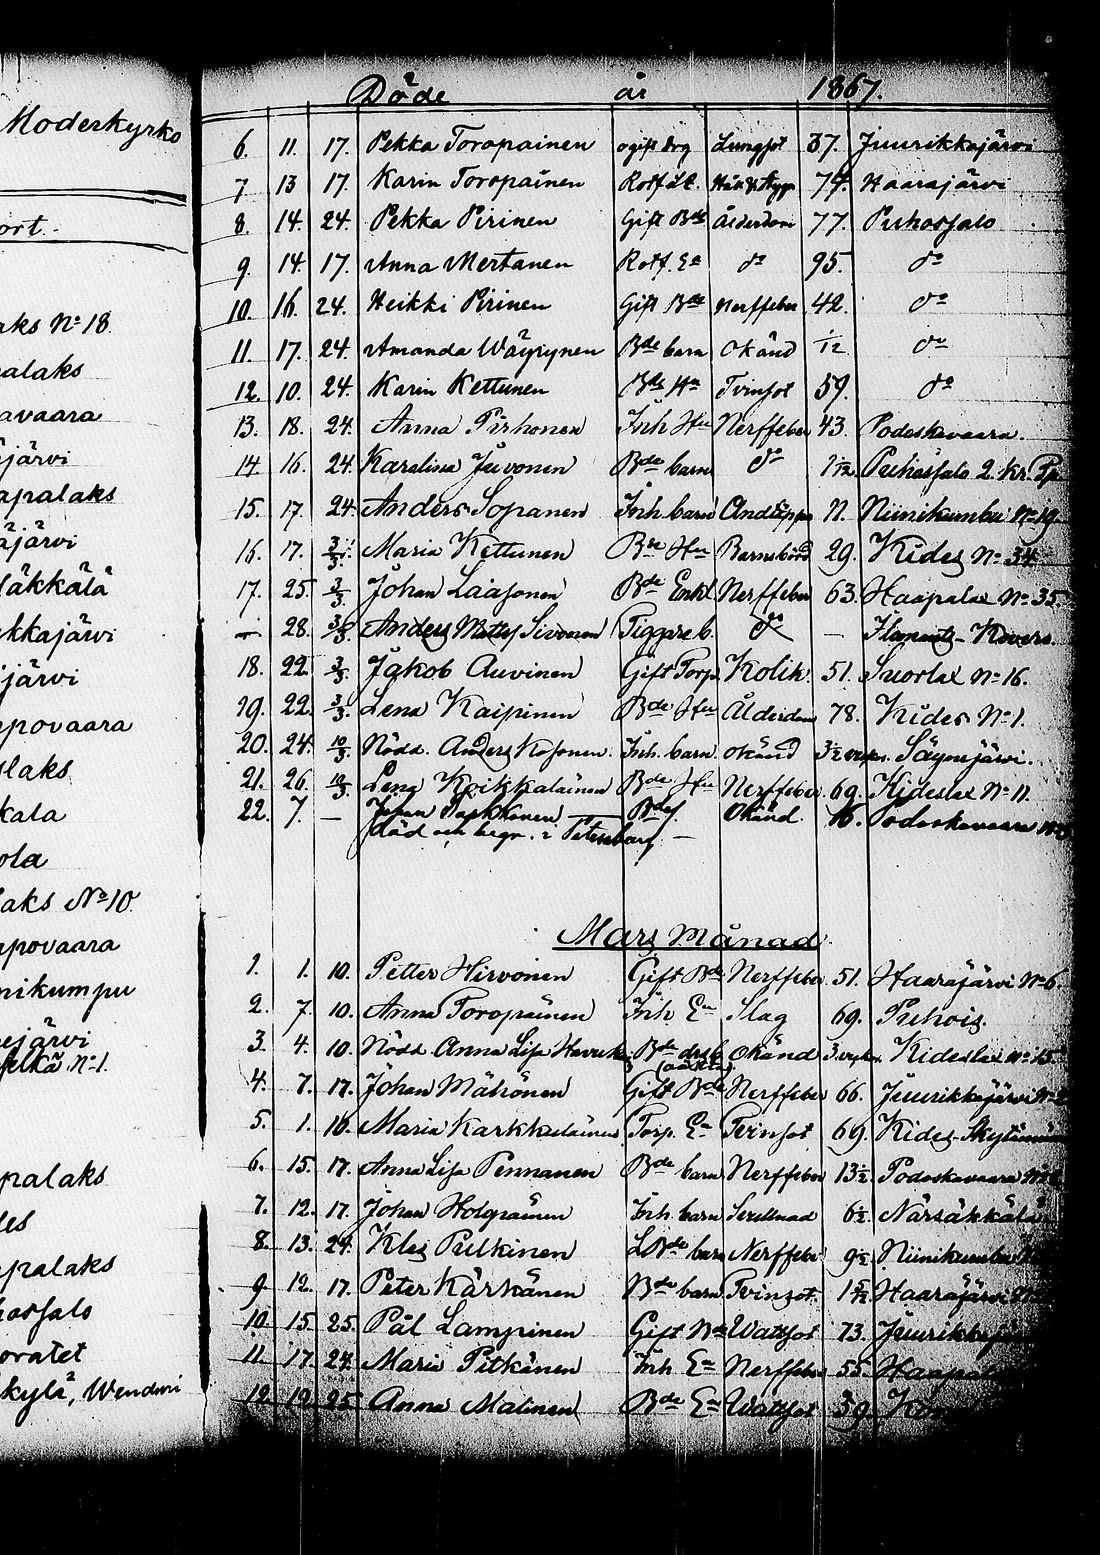 Moderkyrko
ort.
aks No 18.
palaks
avaara
ejärvi
apalaks
äjärvi
säkkälä
kkajärvi
ijärvi
ppovaara
slaks
kala
ola
laks No 10
ppovaara
nikumpu
nejärvi
selkä No 1.
palaks
des
palaks
hossalo
oratet
kylä, Wendwri
Döde år 1867.
6. 11. 17. Pekka Toropainen ogift drg Lungsot 37. Juurikkajärvi
7 13 17. Karin Toropainen Rotf. 74. Haarajärvi
8. 14. 24. Pekka Pirinen Gift Bde Ålderdom 77. Puhossalo
9. 14. 17. Anna Mertanen Rotf. Ea do 95. do
10. 16. 24. Heikki Pirinen Gift Bde Nerffeber 42. do
11. 17. 24. Amanda Wäyrynen Bde barn Okänd 1/12 do
12. 10. 24. Karin Kettunen Bde Hu Tvinsot 59. do
13. 18. 24. Anna Pirhonen Inh Hu Nerffeber 43. Podoskavaara.
14. 16. 24. Karolina Juvonen Bde barn do 1 Puhossalo 2. Kr.
15. 17. 24. Anders Sopanen Inh. barn Andtäppa 11. Niinikumbu No 19
16. 17. 3/3. Maria Kettunen Bde Hu Barnsbörd 29. Kides No 34
17. 25. 3/3 Johan Laasonen Bde Enkl. Nerffeber 63. Haapalax No 35.
— 28. 3/3 Anders Mattss Sivonen Tiggareb. do — Ilomants- Kovero.
18. 22. 3/3. Jakob Auvinen Gift Torp. Kolik. 51. Suorlax No 16.
19. 22. 3/3. Lena Kaipinen Bde Hu Ålderdom 78. Kides No 1.
20. 24. 10/3. Nödd. Anders Kosonen. Inh. barn okänd 3 1/2 Säynejärvi.
21. 26. 10/3. Lena Koikkalainen Bde Hu Nerffeber 69. Kideslax No 11.
22. 7. — Johan Bdes. Okänd. 16. Podoskavaara
död och begr. i Petersburg —
Mars Månad.
1. 1. 10. Petter Hirvonen Gift Bde Nerffeber 51. Haarajärvi No 6.
2. 7. 10. Anna Toropainen Inh. En Slag 69. Puhois.
3. 4. 10. Nödd. Anna Lisa Bde okänd 3 Kideslax No 15.
4. 7. 17. Johan Mähönen Gift Bde Nerffeber 66. Juurikkajärvi
5. 1. 10. Maria Karkkulainen Torp. En Tvinsot 69. Kides
6. 15. 17. Anna Lisa Pennanen Bde barn Nerffeber 13 1/2 Podoskavaara
7. 12. 17. Johan Holopainen Inh. barn 6 1/2 Närsäkkälä
8. 13. 24. Klas Pulkinen LBde barn Nerffeber 9 1/2 Niinikumbu
9 12. 17. Peter Kärkänen Bde barn Tvinsot. 1 5/12 Haarajärvi
10. 15. 25. Pål Lampinen Gift Wattsot 73. Juurikkajä
11. 17. 24. Maria Pitkänen Inh En Nerffeber 55. Haapal
12. 19. 25. Anna Malinen Bde En Wattsot 39.